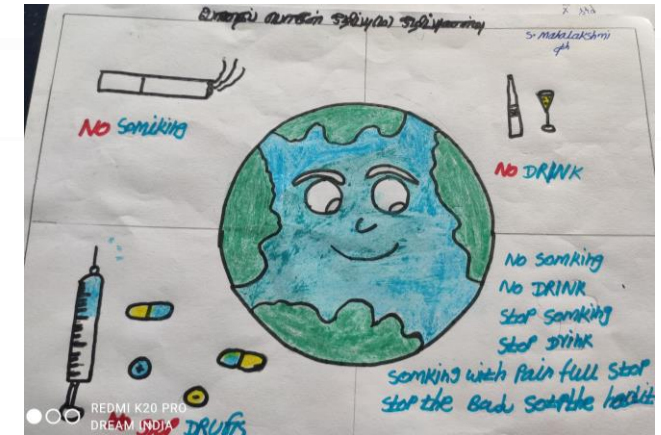 S. Mahalakshmi
9th
No Somiking
No DRINK
No Somking
No DRINK
Stop Somking
Stop Drink
Somking with Pain full Stop
Stop the Bad
DRUGS
REDMI K20 PRO
DREAM INDIA